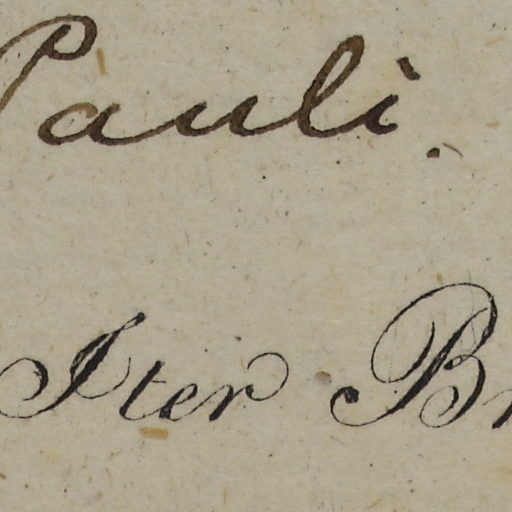 Pauli.
Iter Br